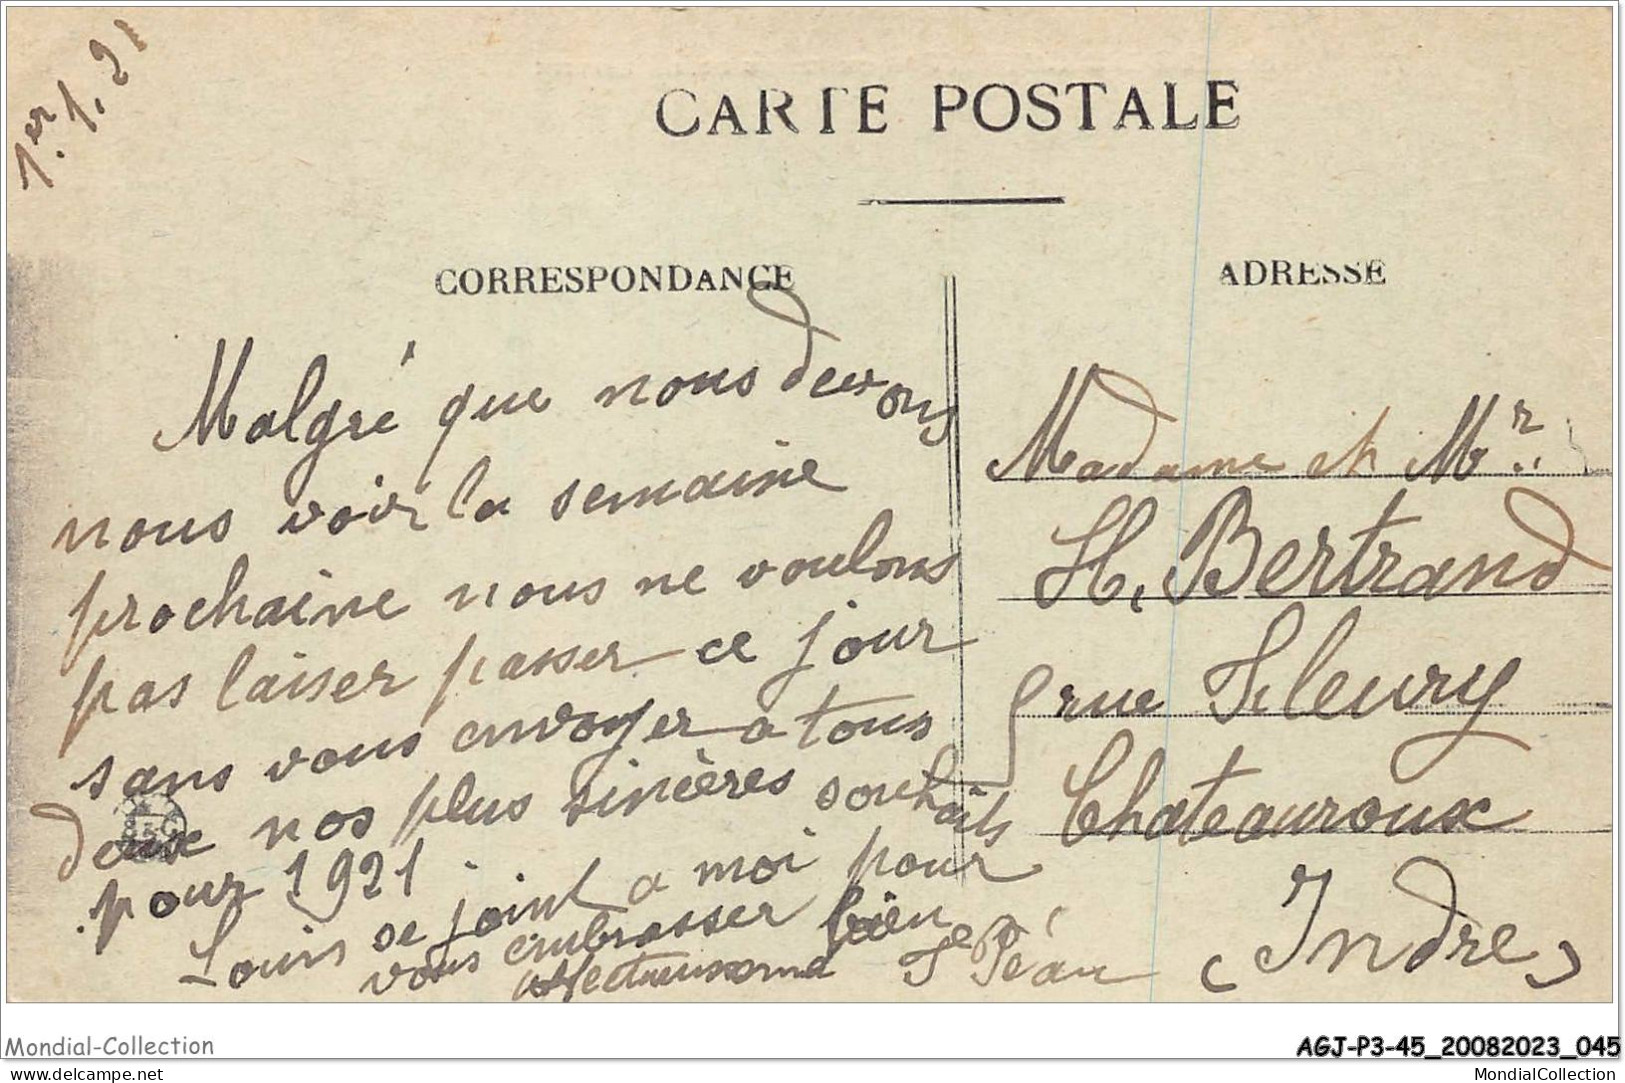 1er. 1. 21
CARTE POSTALE
CORRESPONDANCE
ADRESSE
Malgré que nous devons
nous voir la semaine
prochaine nous ne voulons
pas laiser passer ce jour
sans vous envoyer a tous
deux nos plus sincères souhaits
pour 1921
Louis se joint a moi pour
vous embrasser bien
affectueusement
Péau
Madame et Mr.
H. Bertrand
rue Fleury
Chateauroux
(Indre)
Mondial-Collection
AGJ-P3-45_20082023_045
www.delcampe.net
MondialCollection